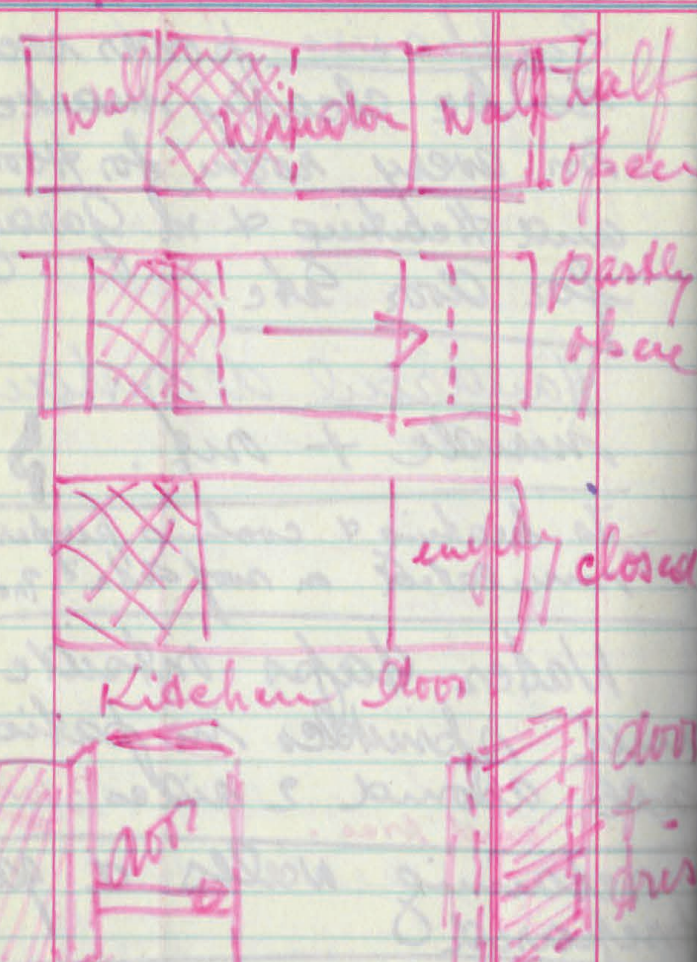 Wall Window Wall half
open
partly
open
empty closed
Kitchen Door
door
door
+